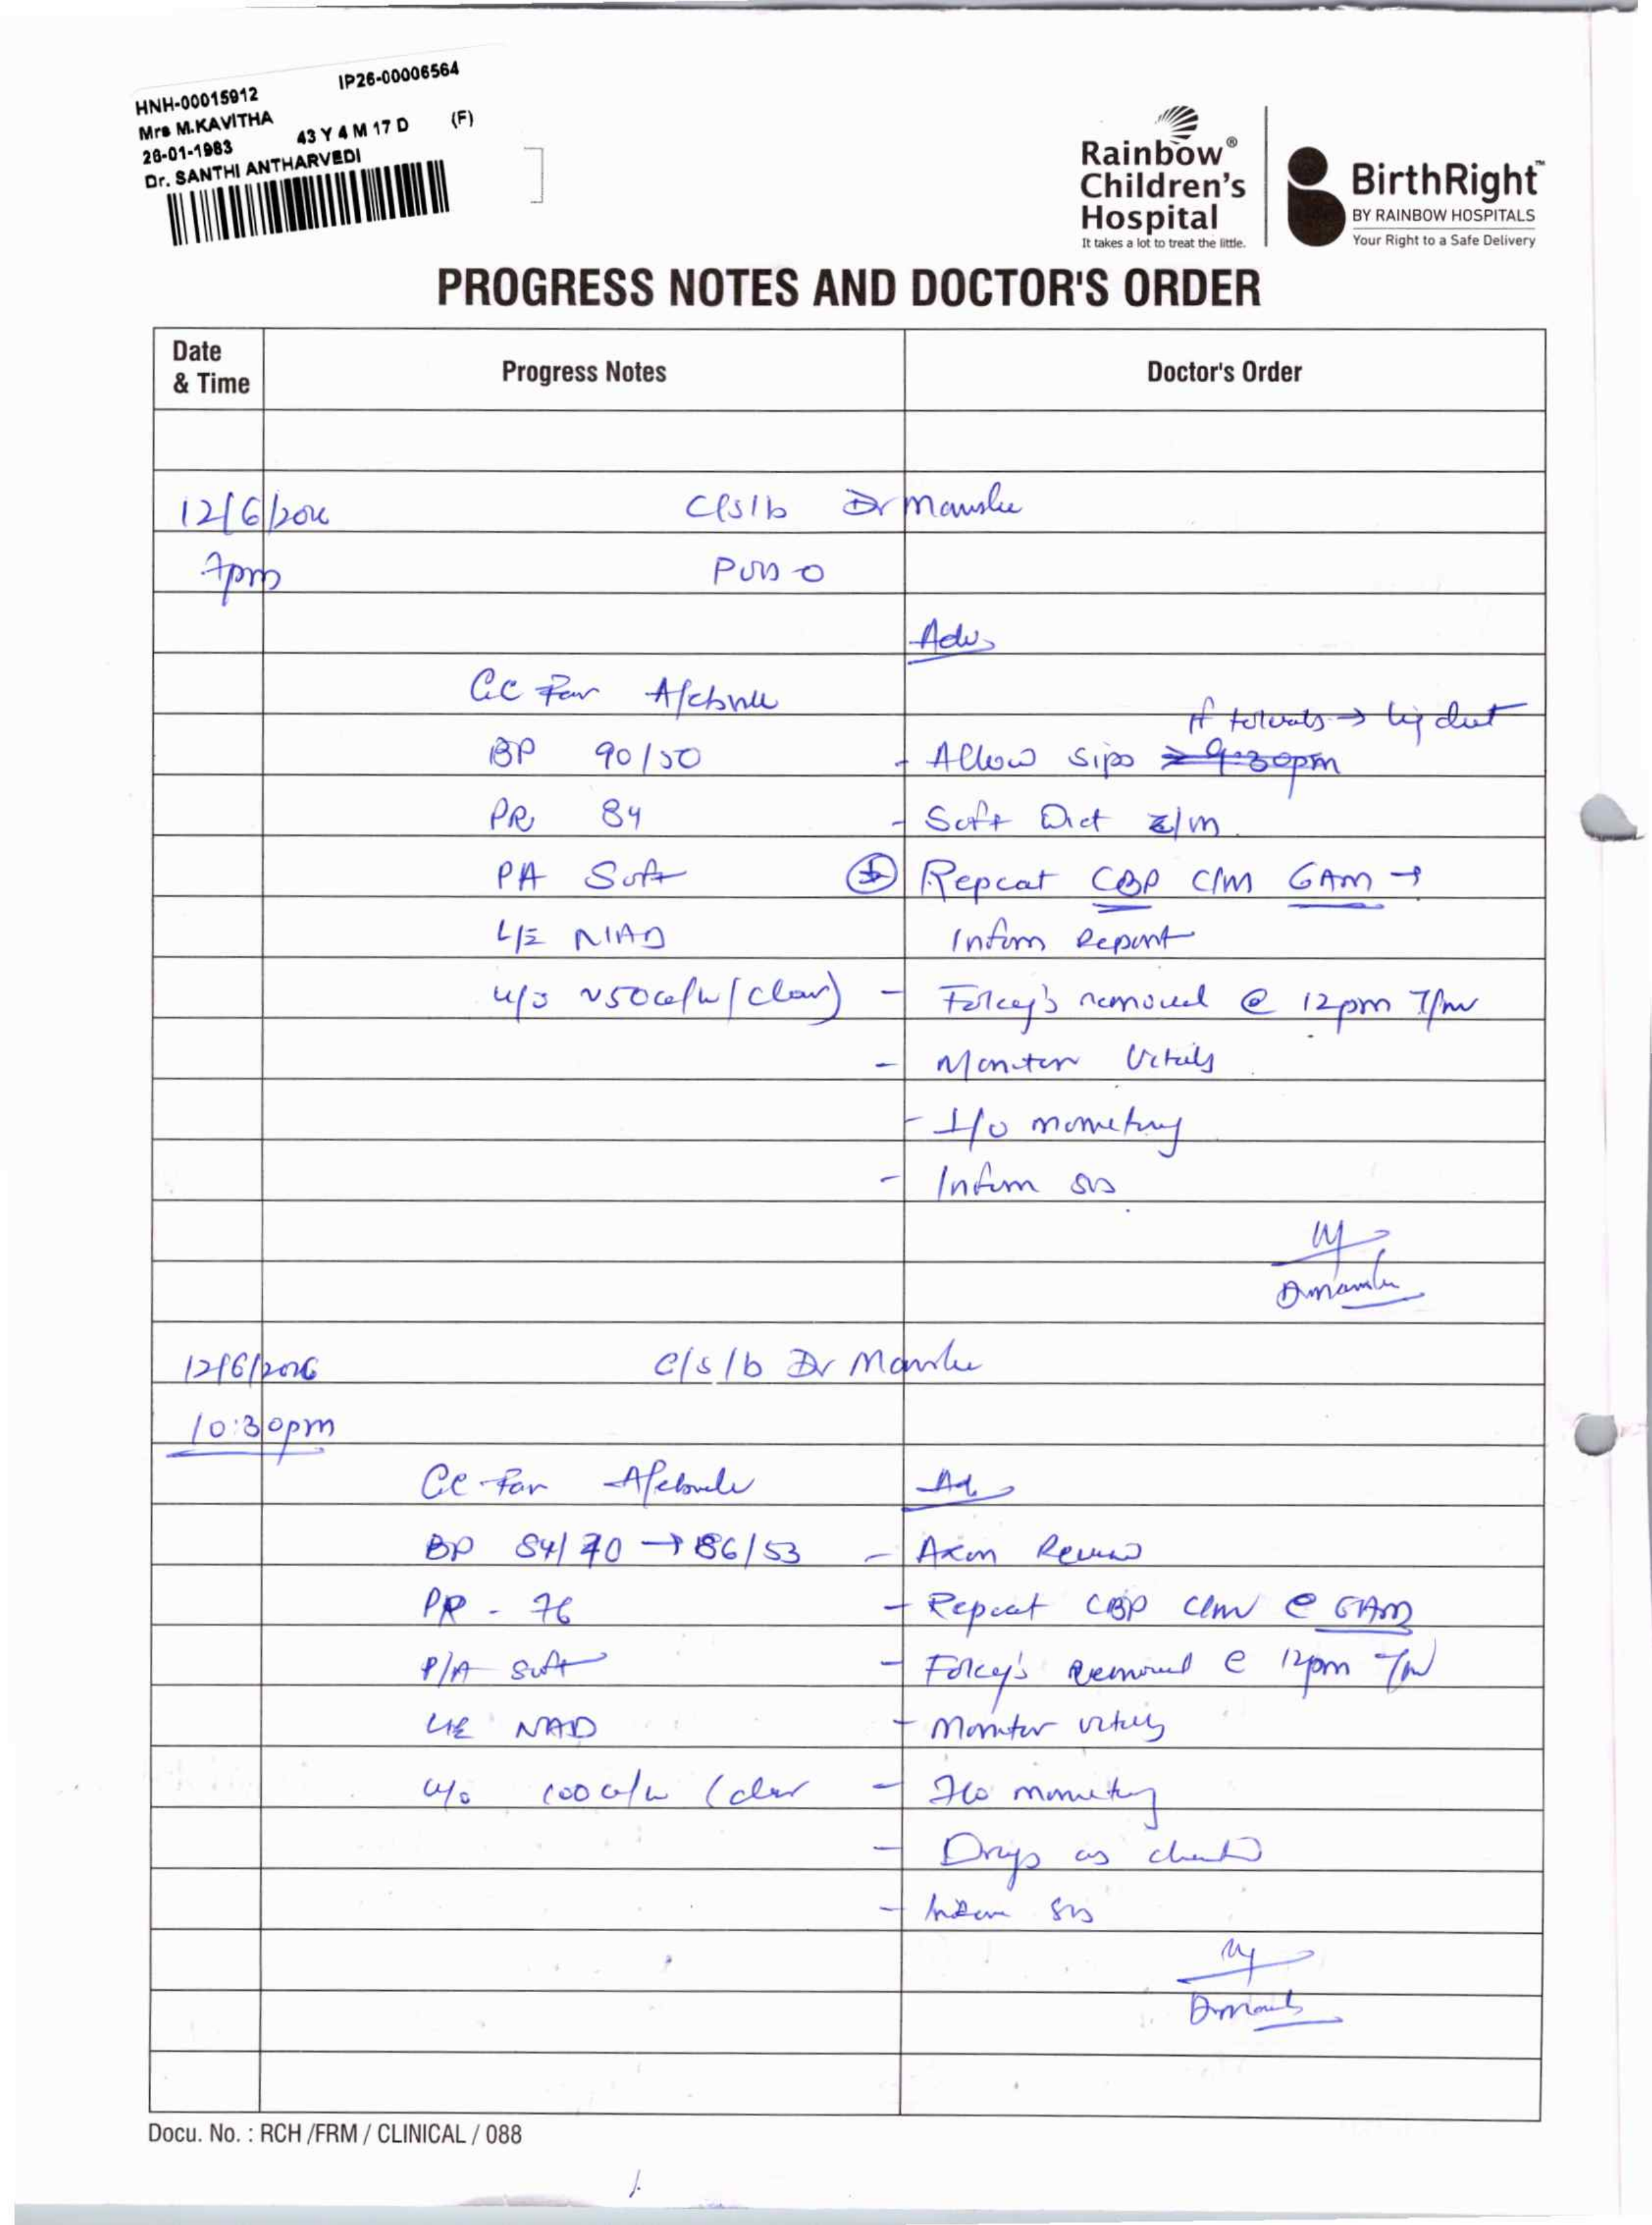 HNH-00015912 IP26-00006564
Mrs M.KAVITHA
26-01-1983 43 Y 4 M 17 D (F)
Dr. SANTHI ANTHARVEDI
Rainbow®
Children's
Hospital
It takes a lot to treat the little.
BirthRight™
BY RAINBOW HOSPITALS
Your Right to a Safe Delivery
PROGRESS NOTES AND DOCTOR'S ORDER
Date & Time Progress Notes Doctor's Order
12/6/2026 C/s/b Dr
7pm POD 0
Adv
GC Fair Afebrile
If tolerates → liq diet
BP 90/50 - Allow sips
PR 84 - Soft Diet
PA Soft Repeat CBP C/M 6AM →
L/E NAD Inform Report
u/o ~50cc/hr (clear) - Foley's removal @ 12pm T/m
- Monitor Vitals
- I/O monitoring
- Inform SOS
12/6/2026 C/s/b Dr
10:30pm
GC Fair Afebrile Adv
BP 84/70 → 86/53 - Review
PR - 76 - Repeat CBP C/M @ 6AM
P/A Soft - Foley's Removal @ 12pm T/m
L/E NAD - Monitor vitals
u/o 100 cc/hr (clear - I/O monitoring
- Drugs as charted
- Inform SOS
Docu. No. : RCH /FRM / CLINICAL / 088